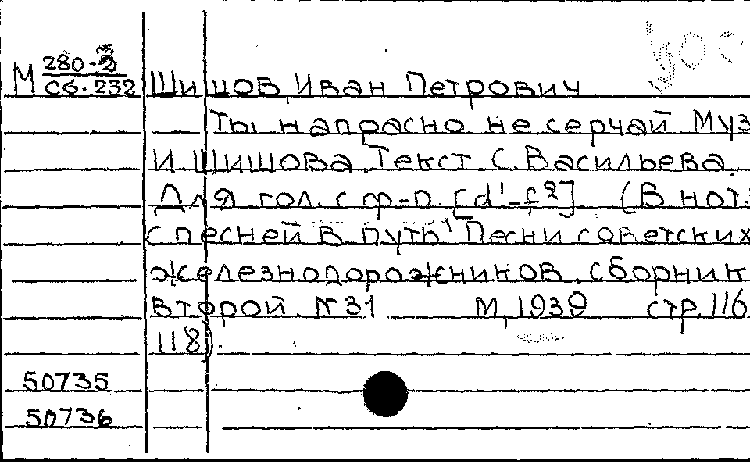 М 280-2
Сб.232 Шишов, Иван Петрович
Ты напрасно не серчай Муз
И. Шишова. Текст С. Васильева.
Для гол. с ф-п. [d¹-f²] (В нот.:
С песней в путь! Песни советских
железнодорожников. Сборник
второй. N 31 М, 1939 стр. 116
118).
50735
50736